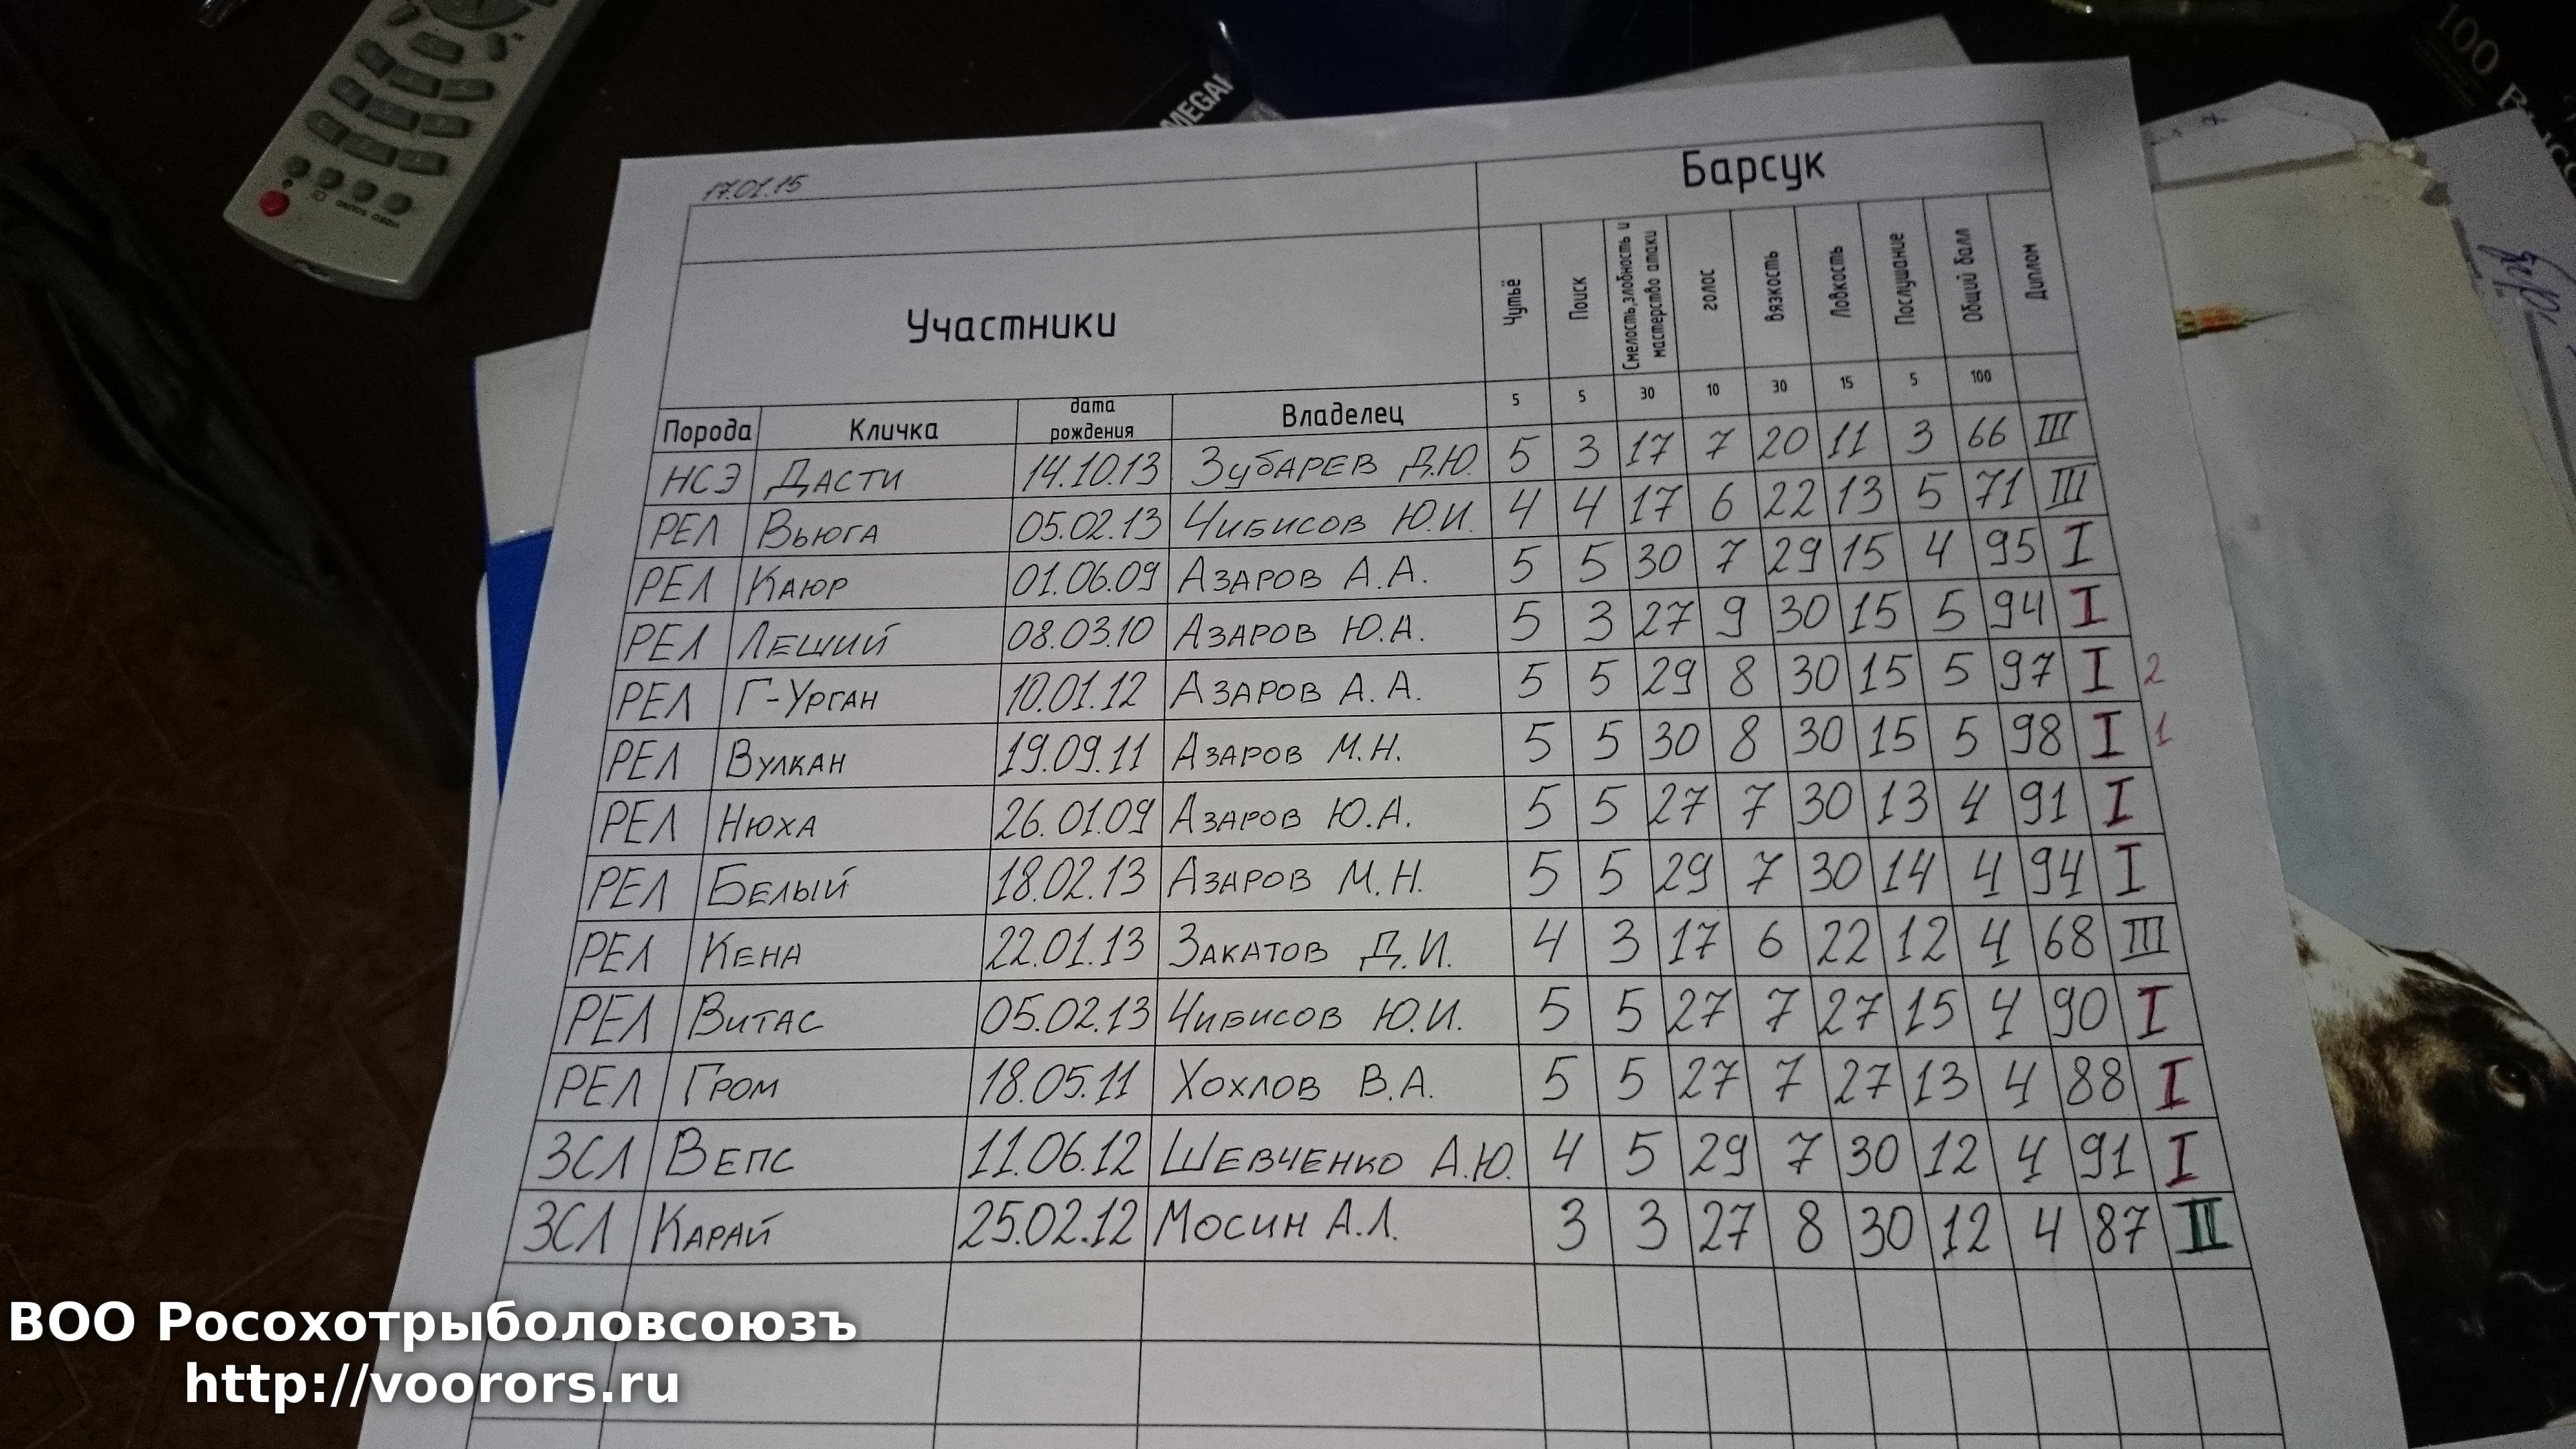 MEGA
100
17.01.15
Барсук
Участники
Чутьё
Поиск
Смелость,злобность и мастерство атаки
голос
вязкость
Ловкость
Послушание
Общий балл
Диплом
5 5 30 10 30 15 5 100
Порода Кличка дата рождения Владелец
НСЭ Дасти 14.10.13 Зубарев Д.Ю. 5 3 17 7 20 11 3 66 III
РЕЛ Вьюга 05.02.13 Чибисов Ю.И. 4 4 17 6 22 13 5 71 III
РЕЛ Каюр 01.06.09 Азаров А.А. 5 5 30 7 29 15 4 95 I
РЕЛ Леший 08.03.10 Азаров Ю.А. 5 3 27 9 30 15 5 94 I
РЕЛ Г-Урган 10.01.12 Азаров А.А. 5 5 29 8 30 15 5 97 I 2
РЕЛ Вулкан 19.09.11 Азаров М.Н. 5 5 30 8 30 15 5 98 I 1
РЕЛ Нюха 26.01.09 Азаров Ю.А. 5 5 27 7 30 13 4 91 I
РЕЛ Белый 18.02.13 Азаров М.Н. 5 5 29 7 30 14 4 94 I
РЕЛ Кена 22.01.13 Закатов Д.И. 4 3 17 6 22 12 4 68 III
РЕЛ Витас 05.02.13 Чибисов Ю.И. 5 5 27 7 27 15 4 90 I
РЕЛ Гром 18.05.11 Хохлов В.А. 5 5 27 7 27 13 4 88 I
ЗСЛ Вепс 11.06.12 Шевченко А.Ю. 4 5 29 7 30 12 4 91 I
ЗСЛ Карай 25.02.12 Мосин А.Л. 3 3 27 8 30 12 4 87 II
ВОО Росохотрыболовсоюзъ
http://voorors.ru